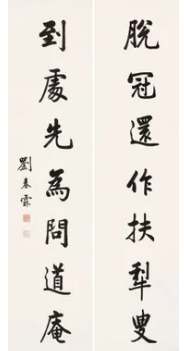 脫冠還作扶犁叟
到處先為問道庵
劉春霖